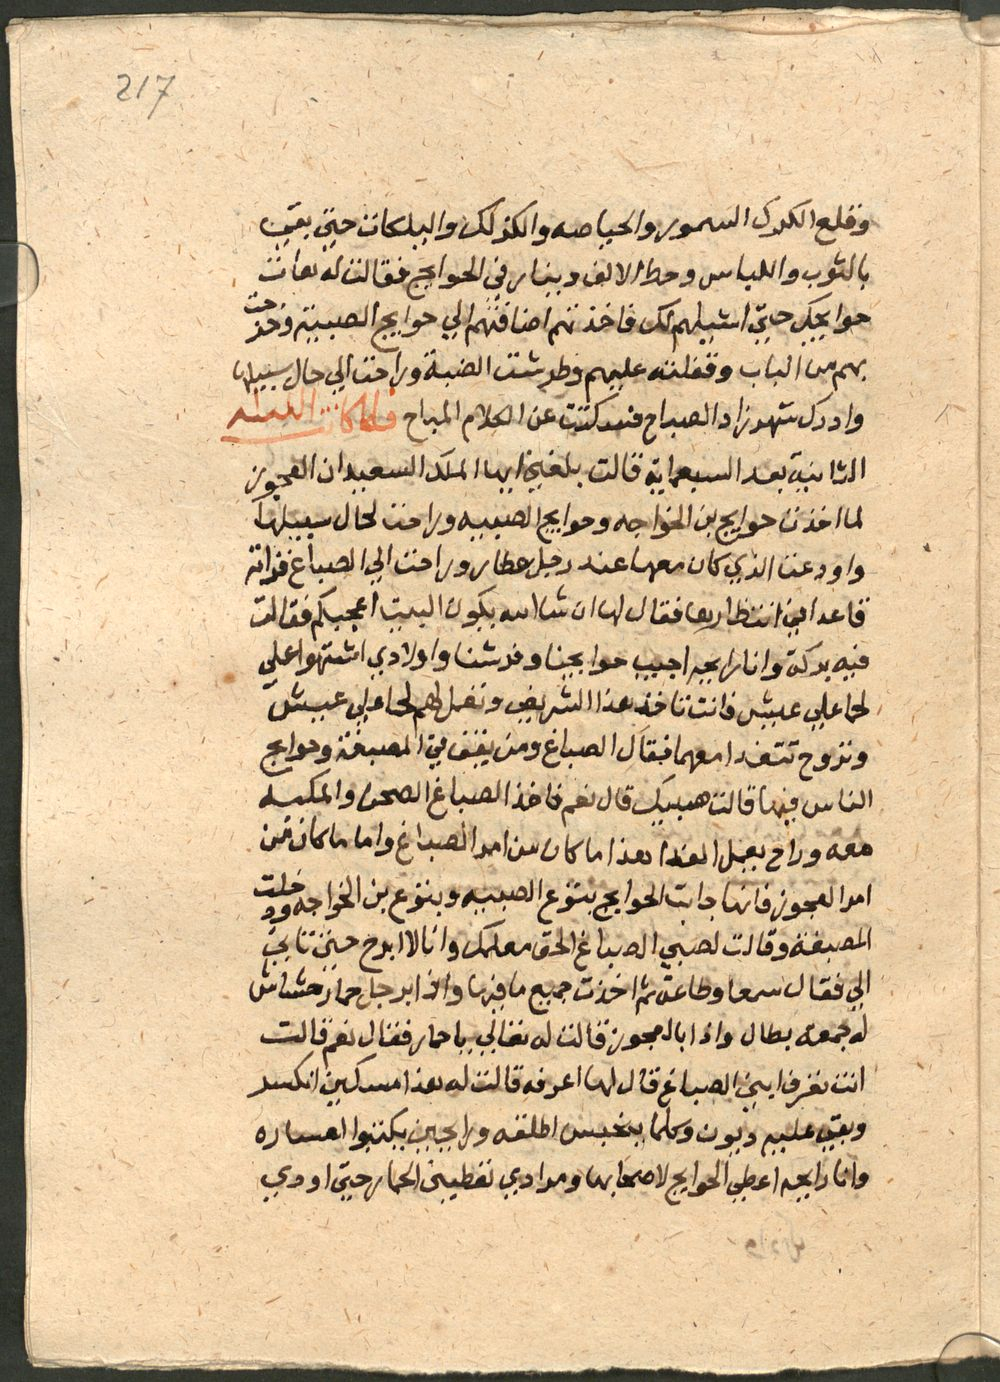 217
وقلع الكرك السمور والحياصه والكزلك والبلكات حتي بقي
بالثوب واللباس وحط الالف دينار في الحوايج فقالت له هات
حوايجك حتي اشيلهم لك فاخذتهم اضافتهم الي حوايج الصبية وخرجت
بهم من الباب وقفلته عليهم وطرشت الضبة وراحت الي حال سبيلها
وادرك شهرزاد الصباح فسكتت عن الكلام المباح فلما كانت الليلة
الثانية بعد السبعماية قالت بلغني ايها الملك السعيد ان العجوز
لما اخذت حوايج بن الخواجه وحوايج الصبيه وراحت لحال سبيلها
واودعت الذي كان معها عند رجل عطار وراحت الي الصباغ فراته
قاعد في انتظارها فقال لها ان شا الله يكون البيت اعجبكم فقالت
فيه بركة وانا رايحه اجيب حوايجنا وفرشنا واولادي اشتهوا علي
لحما علي عيش فانت تاخذ هذا الشريفي وتعمل لهم لحما علي عيش
وتروح تتغدا معهما فقال الصباغ ومن يقف في المصبغة وحوايج
الناس فيها قالت صبيك قال نعم فاخذ الصباغ الصحن والمكبه
معه وراح يعمل الغدا هذا ما كان من امر الصباغ واما ما كان من
امر العجوز فانها جابت الحوايج بتوع الصبيه وبتوع بن الخواجه ودخلت
المصبغة وقالت لصبي الصباغ الحق معلمك وانا لا ابرح حتي تاتي
الي فقال سمعا وطاعة ثم اخذت جميع ما فيها واذا برجل حمار حشاش
له جمعه بطال واذا بالعجوز قالت له تعالي يا حمار فقال نعم قالت
انت تعرف ابني الصباغ قال لها اعرفه قالت له هذا مسكين انكسر
وبقي عليه ديون وكلما يتحبس اطلقه ورايحين يكتبوا اعساره
وانا رايحه اعطي الحوايج لاصحابها ومرادي تعطيني الحمار حتي اودي